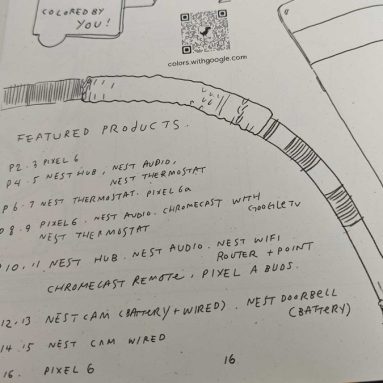 COLORED BY
YOU!
colors.withgoogle.com
FEATURED PRODUCTS.
P2.3 PIXEL 6
P4.5 NEST HUB, NEST AUDIO,
NEST THERMOSTAT
P6.7 NEST THERMOSTAT. PIXEL 6a
P8.9 PIXEL 6. NEST AUDIO. CHROMECAST WITH
GOOGLE TV
NEST THERMOSTAT
P10.11 NEST HUB. NEST AUDIO. NEST WIFI
ROUTER + POINT
CHROMECAST REMOTE, PIXEL A BUDS.
12.13 NEST CAM (BATTERY + WIRED). NEST DOORBELL
(BATTERY)
14.15 NEST CAM WIRED
16. PIXEL 6
16